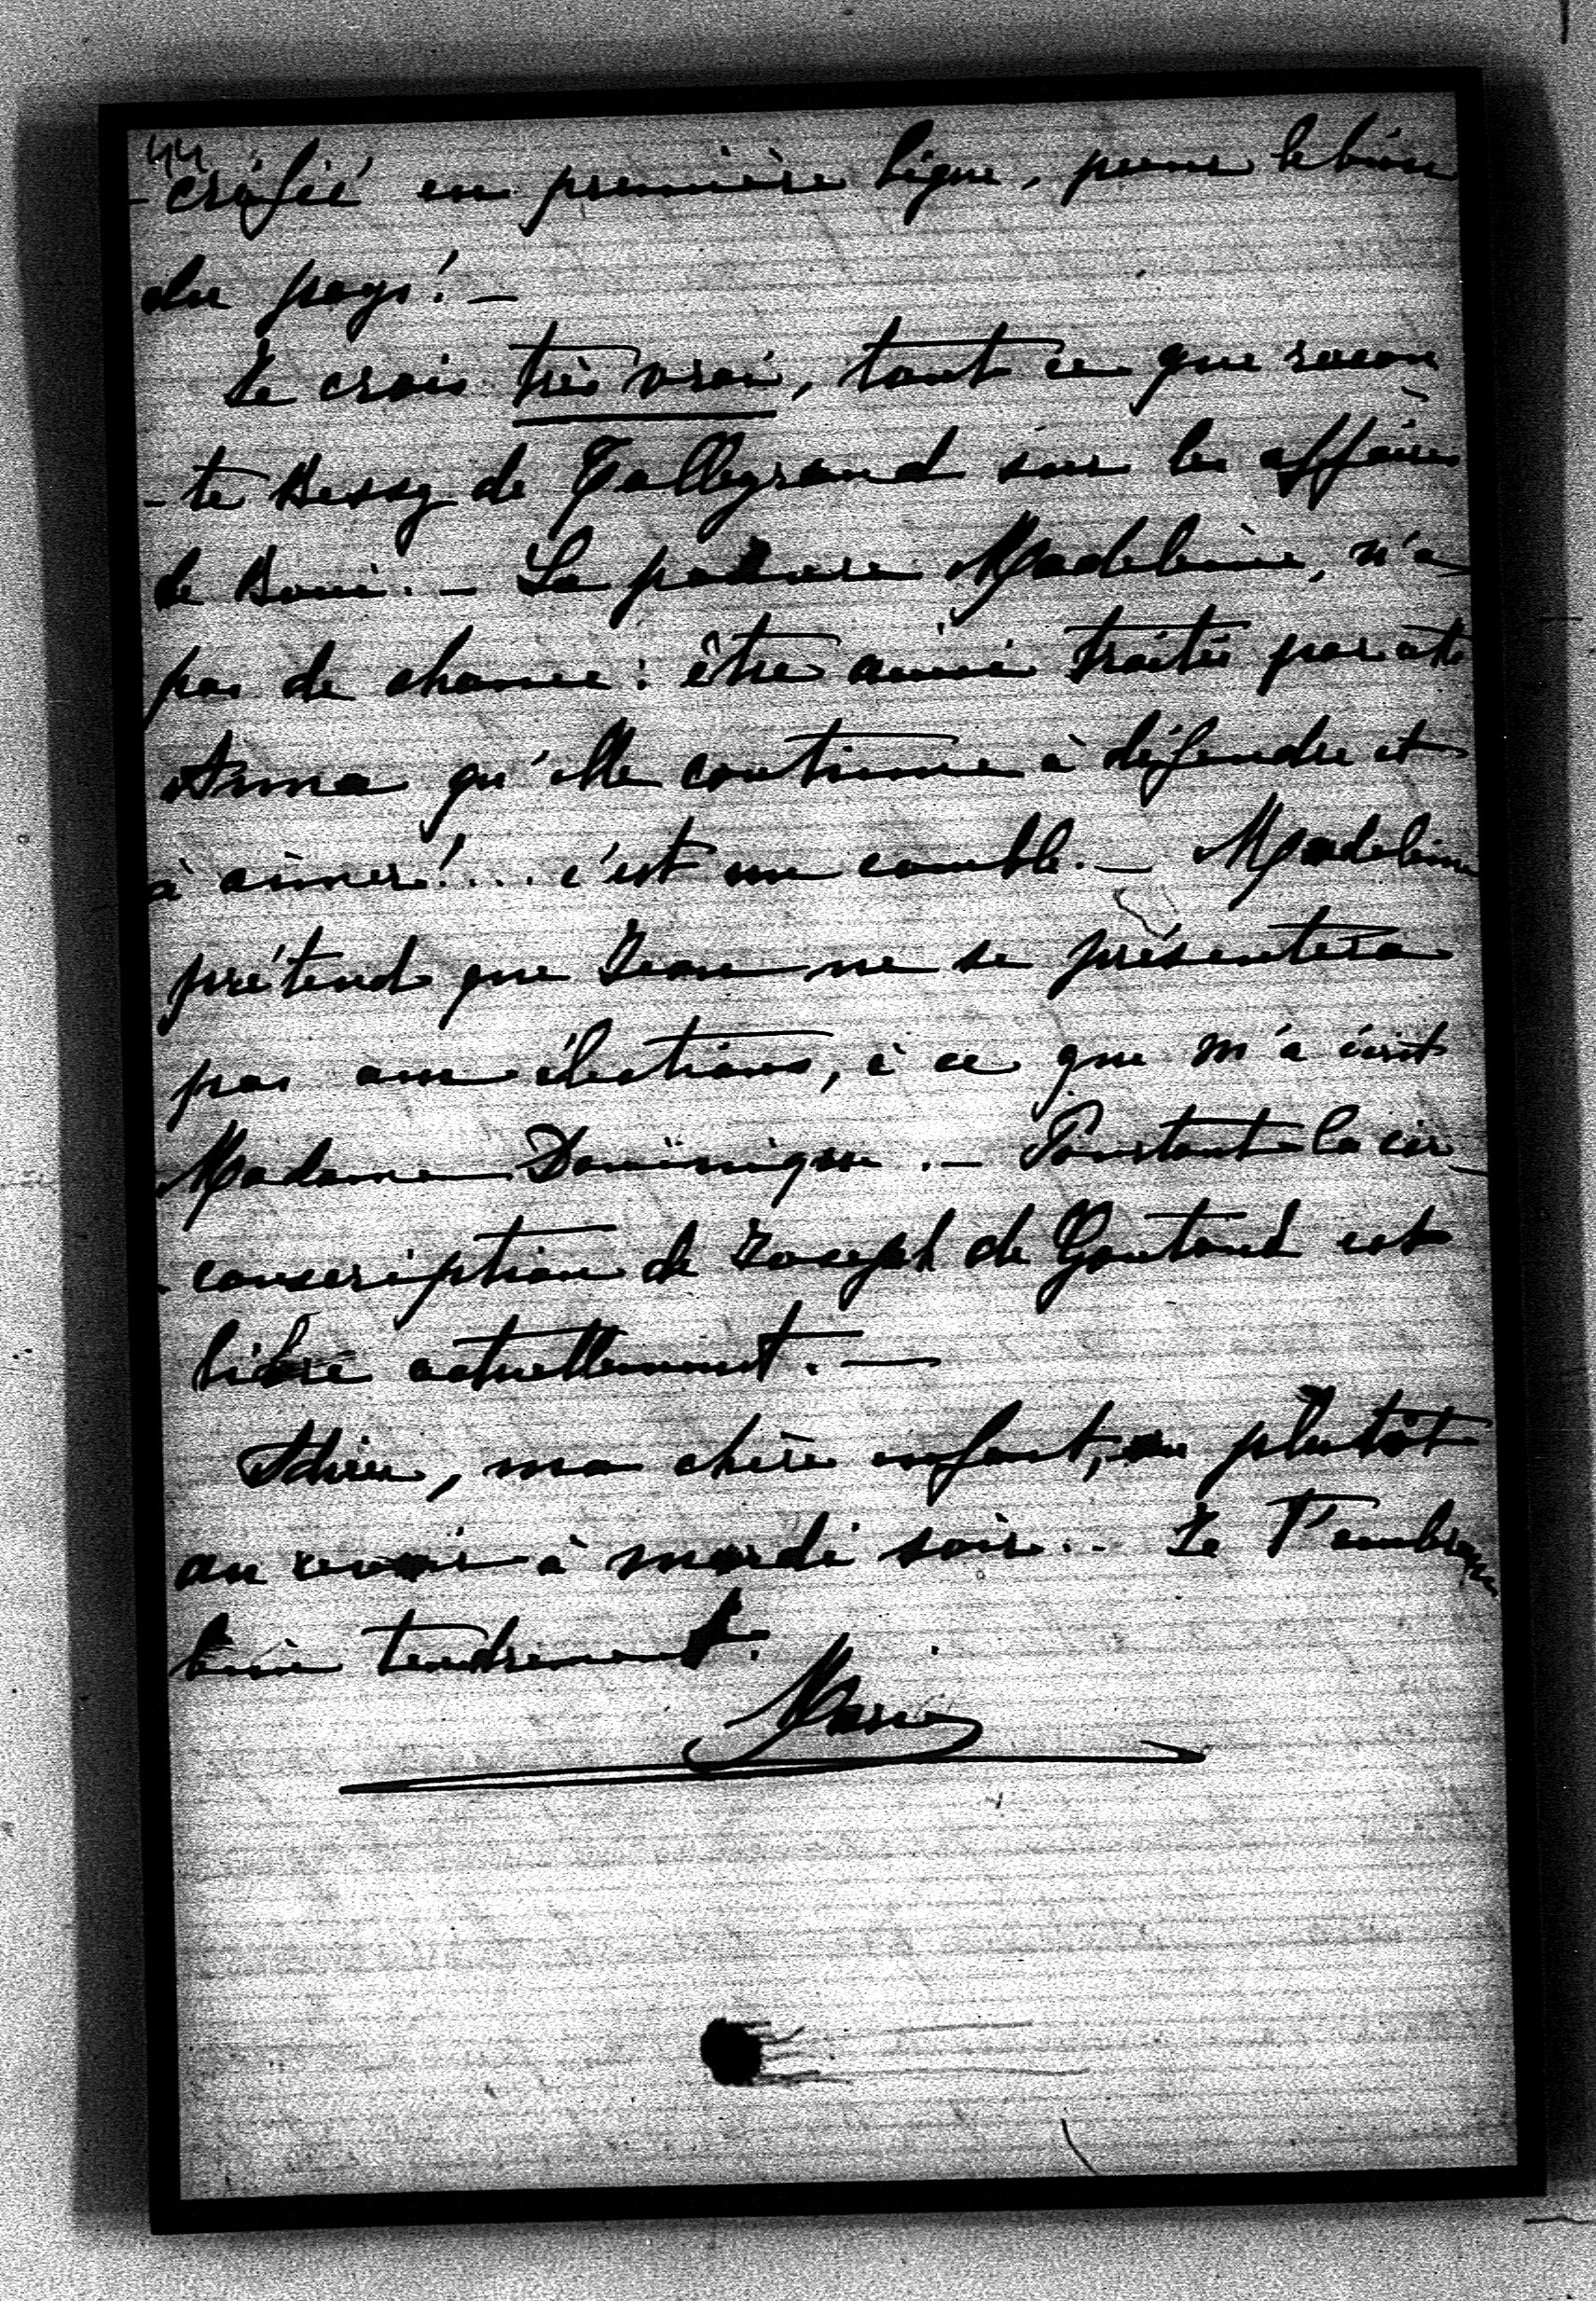 44
- crifié en première ligne, pour le bien
du pays! —
Je crois très vrai, tout ce que racon
- te Bessy de Talleyrand sur les affaires
de Boni. — La pauvre Madeleine, n'a
pas de chance : être ainsi traitée par cette
Anna qu'elle continue à défendre et
à aimer!.... c'est un comble. — Madeleine
prétend que Jean ne se présentera
pas aux élections, à ce que m'a écrit
Madame Dominique. — Pourtant la cir
- conscription de Joseph de Gontaud est
libre actuellement. —
Adieu, ma chère enfant, ou plutôt
au revoir à mardi soir.. Je t'embrasse
bien tendrement.
Marie